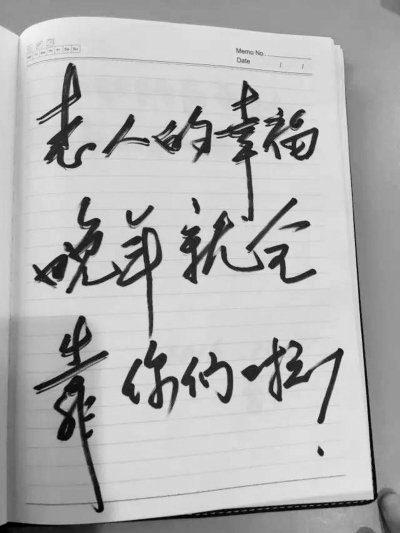 Memo No.
Date / /
老人的幸福
晚年就全
靠你们啦！